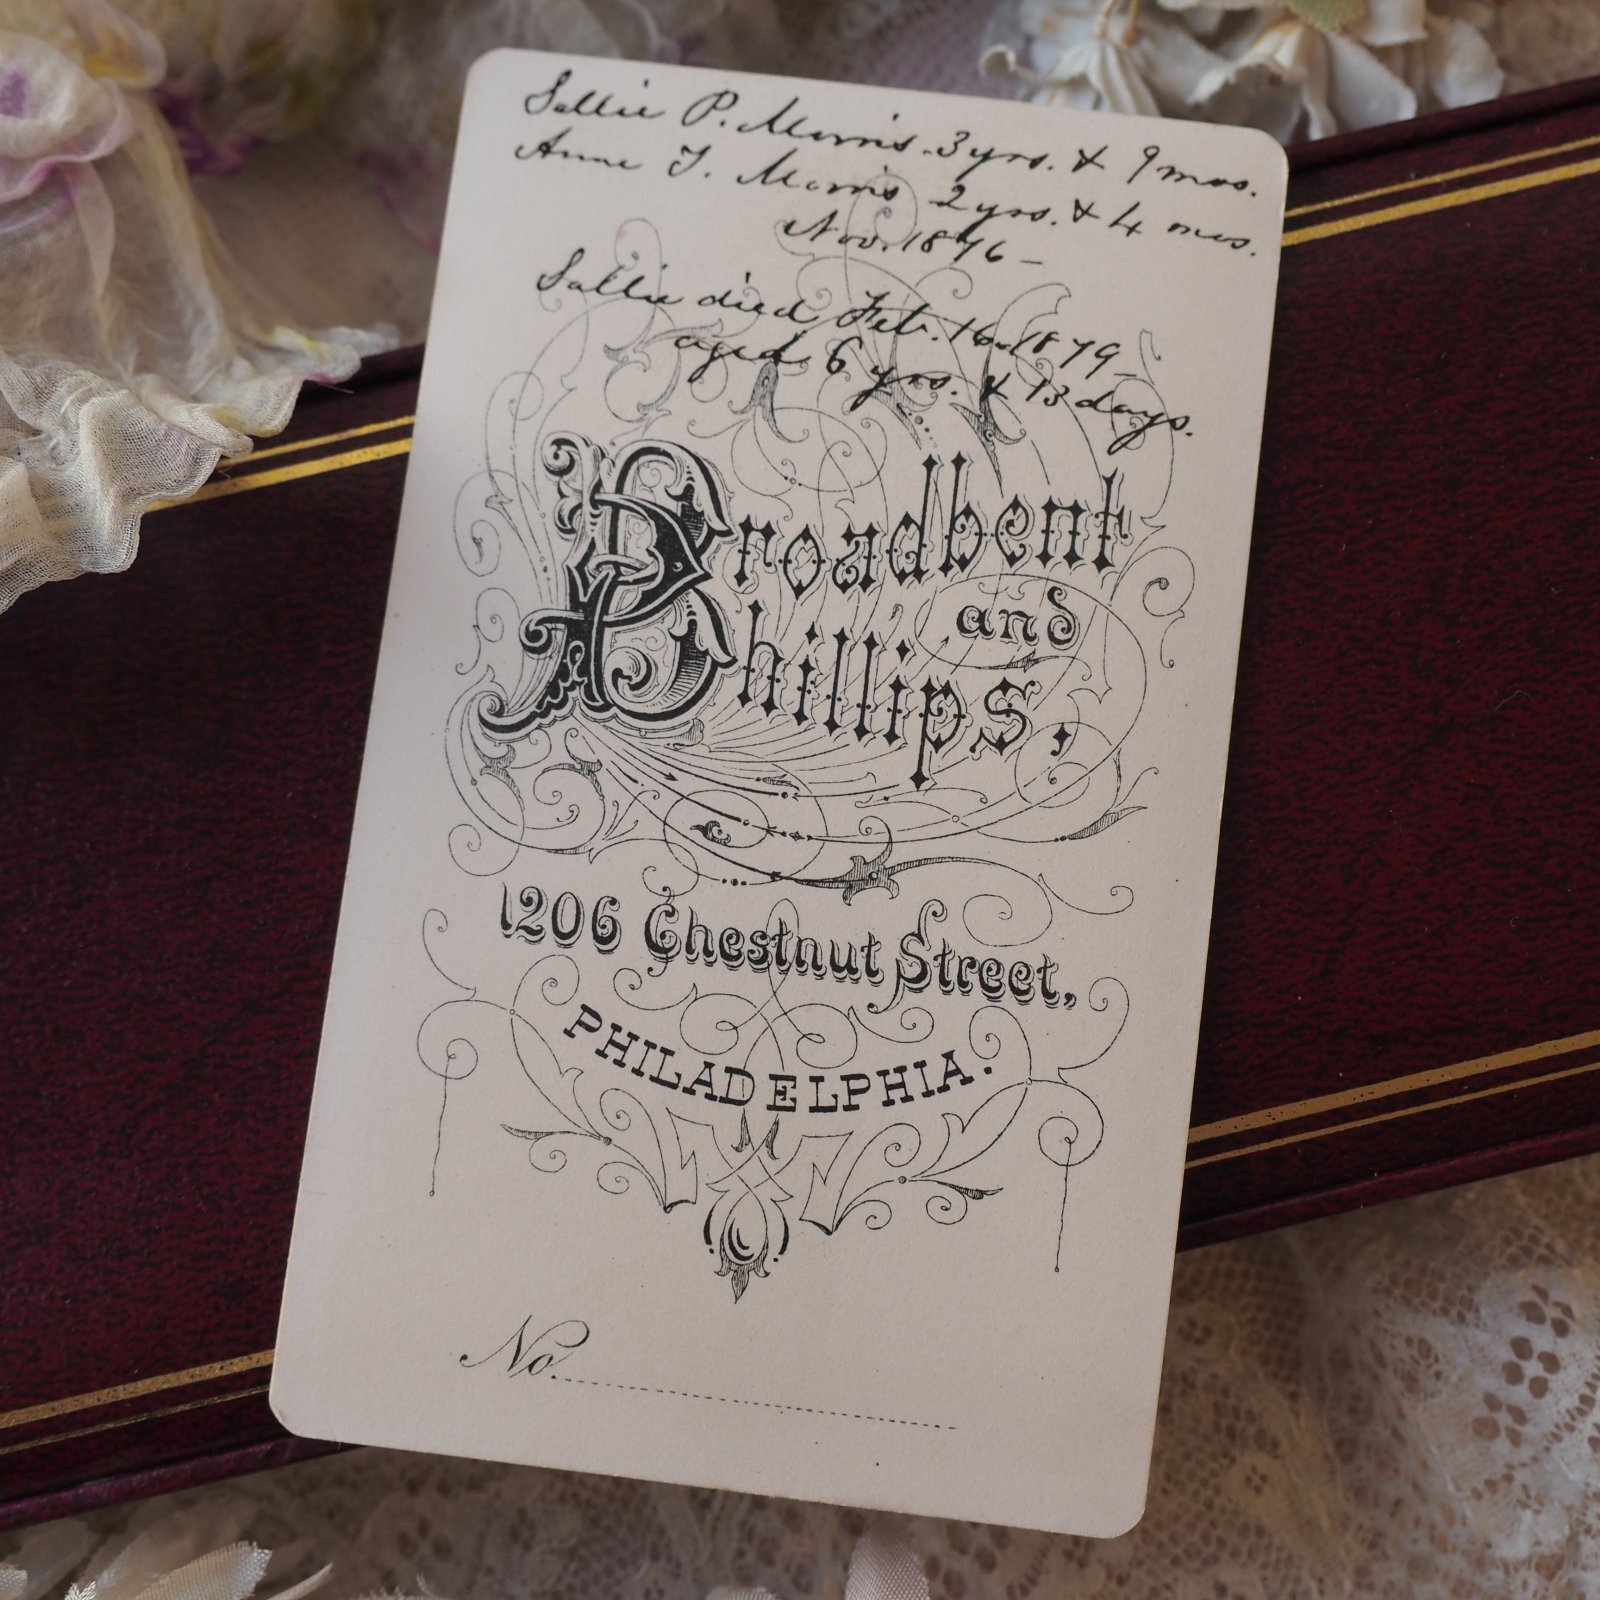 Sallie P. Morris. 3 yrs. & 9 mos.
Anne T. Morris 2 yrs. & 4 mos.
Nov. 1876 -
Sallie died Feb. 16. 1879 -
aged 6 yrs. & 13 days.
Broadbent
and
Phillips,
1206 Chestnut Street,
PHILADELPHIA.
No.